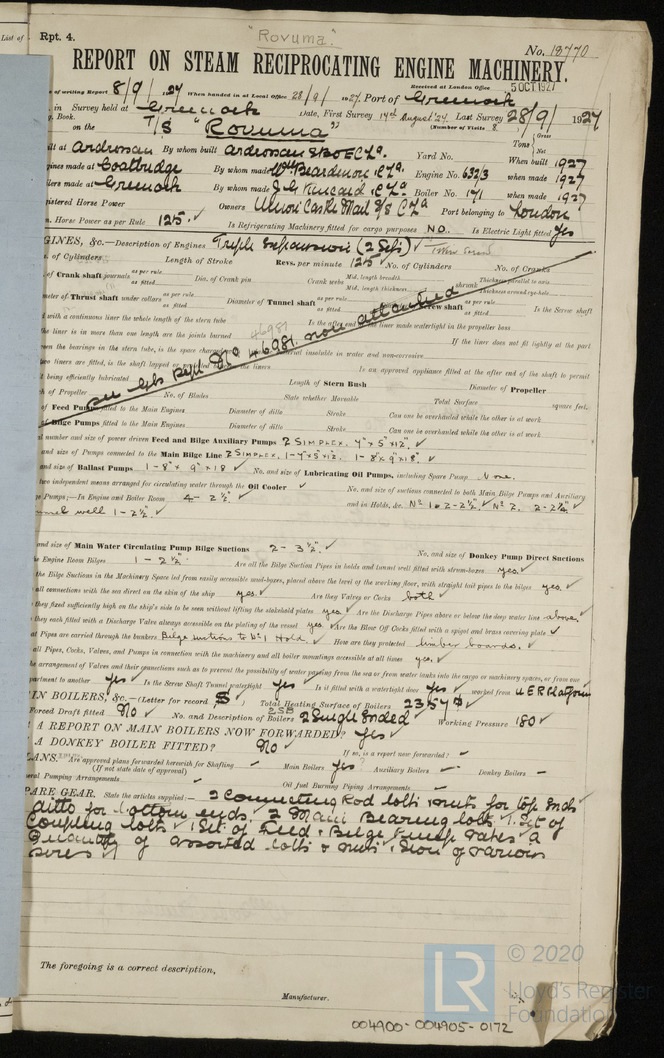 List of
Rpt. 4.
"Rovuma"
No. 18770
REPORT ON STEAM RECIPROCATING ENGINE MACHINERY.
Received at London Office 5 OCT 1927
of writing Report 8/9/1927 When handed in at Local Office 28/9/1927 Port of Greenock
in Survey held at Greenock Date, First Survey 14th August '27 Last Survey 28/9/1927
Book. (Number of Visits 8.
on the T/S "Rovuma" Tons Gross Net
at Ardrossan By whom built Ardrossan Yard No. When built 1927
made at Coatbridge By whom made Wm Beardmore & Co Engine No. 632/3 when made 1927
made at Greenock By whom made J G Kincaid & Co Boiler No. 171 when made 1927
Horse Power Owners Union Castle Mail S/S Co Port belonging to London
Horse Power as per Rule 125. Is Refrigerating Machinery fitted for cargo purposes No. Is Electric Light fitted Yes
GINES, &c.—Description of Engines Triple Expansion (2 Sets) Twin Screw
of Cylinders Length of Stroke Revs. per minute 125 No. of Cylinders No. of Cranks
of Crank shaft journals as per rule as fitted Dia. of Crank pin Crank webs Mid. length breadth Mid. length thickness shrunk Thickness parallel to axis Thickness around eye-hole
of Thrust shaft under collars as per rule as fitted Diameter of Tunnel shaft as per rule as fitted Screw shaft as per rule as fitted Is the Screw shaft
with a continuous liner the whole length of the stern tube Is the after end of the liner made watertight in the propeller boss
the liner is in more than one length are the joints burned 46981 If the liner does not fit tightly at the part
the bearings in the stern tube, is the space charged material insoluble in water and non-corrosive
two liners are fitted, is the shaft lapped the liners Is an approved appliance fitted at the after end of the shaft to permit
see Gls Rept No 46981 now attached
being efficiently lubricated Length of Stern Bush Diameter of Propeller
of Propeller No. of Blades State whether Moveable Total Surface square feet.
of Feed Pumps fitted to the Main Engines Diameter of ditto Stroke Can one be overhauled while the other is at work
of Bilge Pumps fitted to the Main Engines Diameter of ditto Stroke Can one be overhauled while the other is at work
number and size of power driven Feed and Bilge Auxiliary Pumps 2 Simplex. 4" x 5" x 12".
and size of Pumps connected to the Main Bilge Line 2 Simplex. 1-4" x 5" x 12". 1-8" x 9" x 18".
and size of Ballast Pumps 1-8" x 9" x 18 No. and size of Lubricating Oil Pumps, including Spare Pump None.
two independent means arranged for circulating water through the Oil Cooler No. and size of suctions connected to both Main Bilge Pumps and Auxiliary
Pumps;—In Engine and Boiler Room 4- 2½". and in Holds, &c. No 1 2-2½". No 2. 2-2¼".
well 1-2½".
and size of Main Water Circulating Pump Bilge Suctions 2- 3½". No. and size of Donkey Pump Direct Suctions
the Engine Room Bilges 1 - 2½". Are all the Bilge Suction Pipes in holds and tunnel well fitted with strum-boxes yes.
the Bilge Suctions in the Machinery Space led from easily accessible mud-boxes, placed above the level of the working floor, with straight tail pipes to the bilges yes.
all connections with the sea direct on the skin of the ship yes. Are they Valves or Cocks both
they fixed sufficiently high on the ship's side to be seen without lifting the stokehold plates yes. Are the Discharge Pipes above or below the deep water line above.
they each fitted with a Discharge Valve always accessible on the plating of the vessel yes Are the Blow Off Cocks fitted with a spigot and brass covering plate
Pipes are carried through the bunkers Bilge suctions to No 1 Hold. How are they protected limber boards.
all Pipes, Cocks, Valves, and Pumps in connection with the machinery and all boiler mountings accessible at all times yes.
the arrangement of Valves and their connections such as to prevent the possibility of water passing from the sea or from water tanks into the cargo or machinery spaces, or from one
partment to another yes Is the Screw Shaft Tunnel watertight yes Is it fitted with a watertight door yes worked from U.E.R Platform
IN BOILERS, &c.—(Letter for record S) Total Heating Surface of Boilers
Forced Draft fitted No No. and Description of Boilers 2SB 2 Single Ended Working Pressure 180
A REPORT ON MAIN BOILERS NOW FORWARDED? Yes
A DONKEY BOILER FITTED? No If so, is a report now forwarded? -
ANS. Are approved plans forwarded herewith for Shafting - Main Boilers Yes Auxiliary Boilers - Donkey Boilers -
(If not state date of approval)
General Pumping Arrangements - Oil fuel Burning Piping Arrangements -
ARE GEAR. State the articles supplied:— 2 Connecting Rod bolts & nuts for top ends
ditto for bottom ends, 2 Main Bearing bolts, 1 Set of
Coupling bolts, 1 Set of Feed & Bilge Pump valves a
Quantity of assorted bolts & nuts & Iron of various
sizes
The foregoing is a correct description,
Manufacturer.
© 2020
LR
Lloyd's Register
Foundation
004900-004905-0172